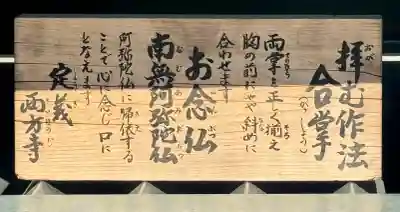 拝む作法
合掌
両掌を正く揃え
胸の前にやや斜めに
合わせます
お念仏
南無阿弥陀仏
阿弥陀仏に帰依する
ことで心に念じ口に
となえます
定義
西方寺